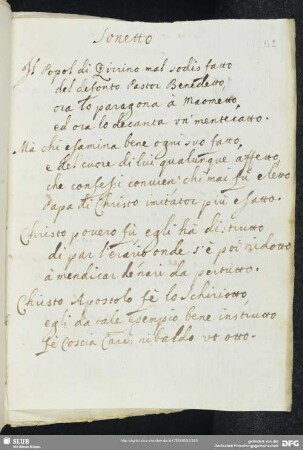 Sonetto
Il Popol di Quirino mal sodisfatto
del defonto Pastor Benedetto
ora lo paragona à Maometto,
ed ora lo decanta un mentecatto.
Mà chi esamina bene ogni suo fatto,
e del cuore di lui qualunque affetto,
che confessi convien chi mai fù eletto
Papa di Christo imitator più esatto.
Christo povero fù egli hà distrutto
di par l'erario onde s'è poi ridotto
à mendicar denari da per tutto.
Christo Apostolo fè lo
egli da tale esempio bene instrutto
fè Coscia Card: ribaldo ut otto.
SLUB
Wir führen Wissen.
gefördert von der
Deutschen Forschungsgemeinschaft
DFG